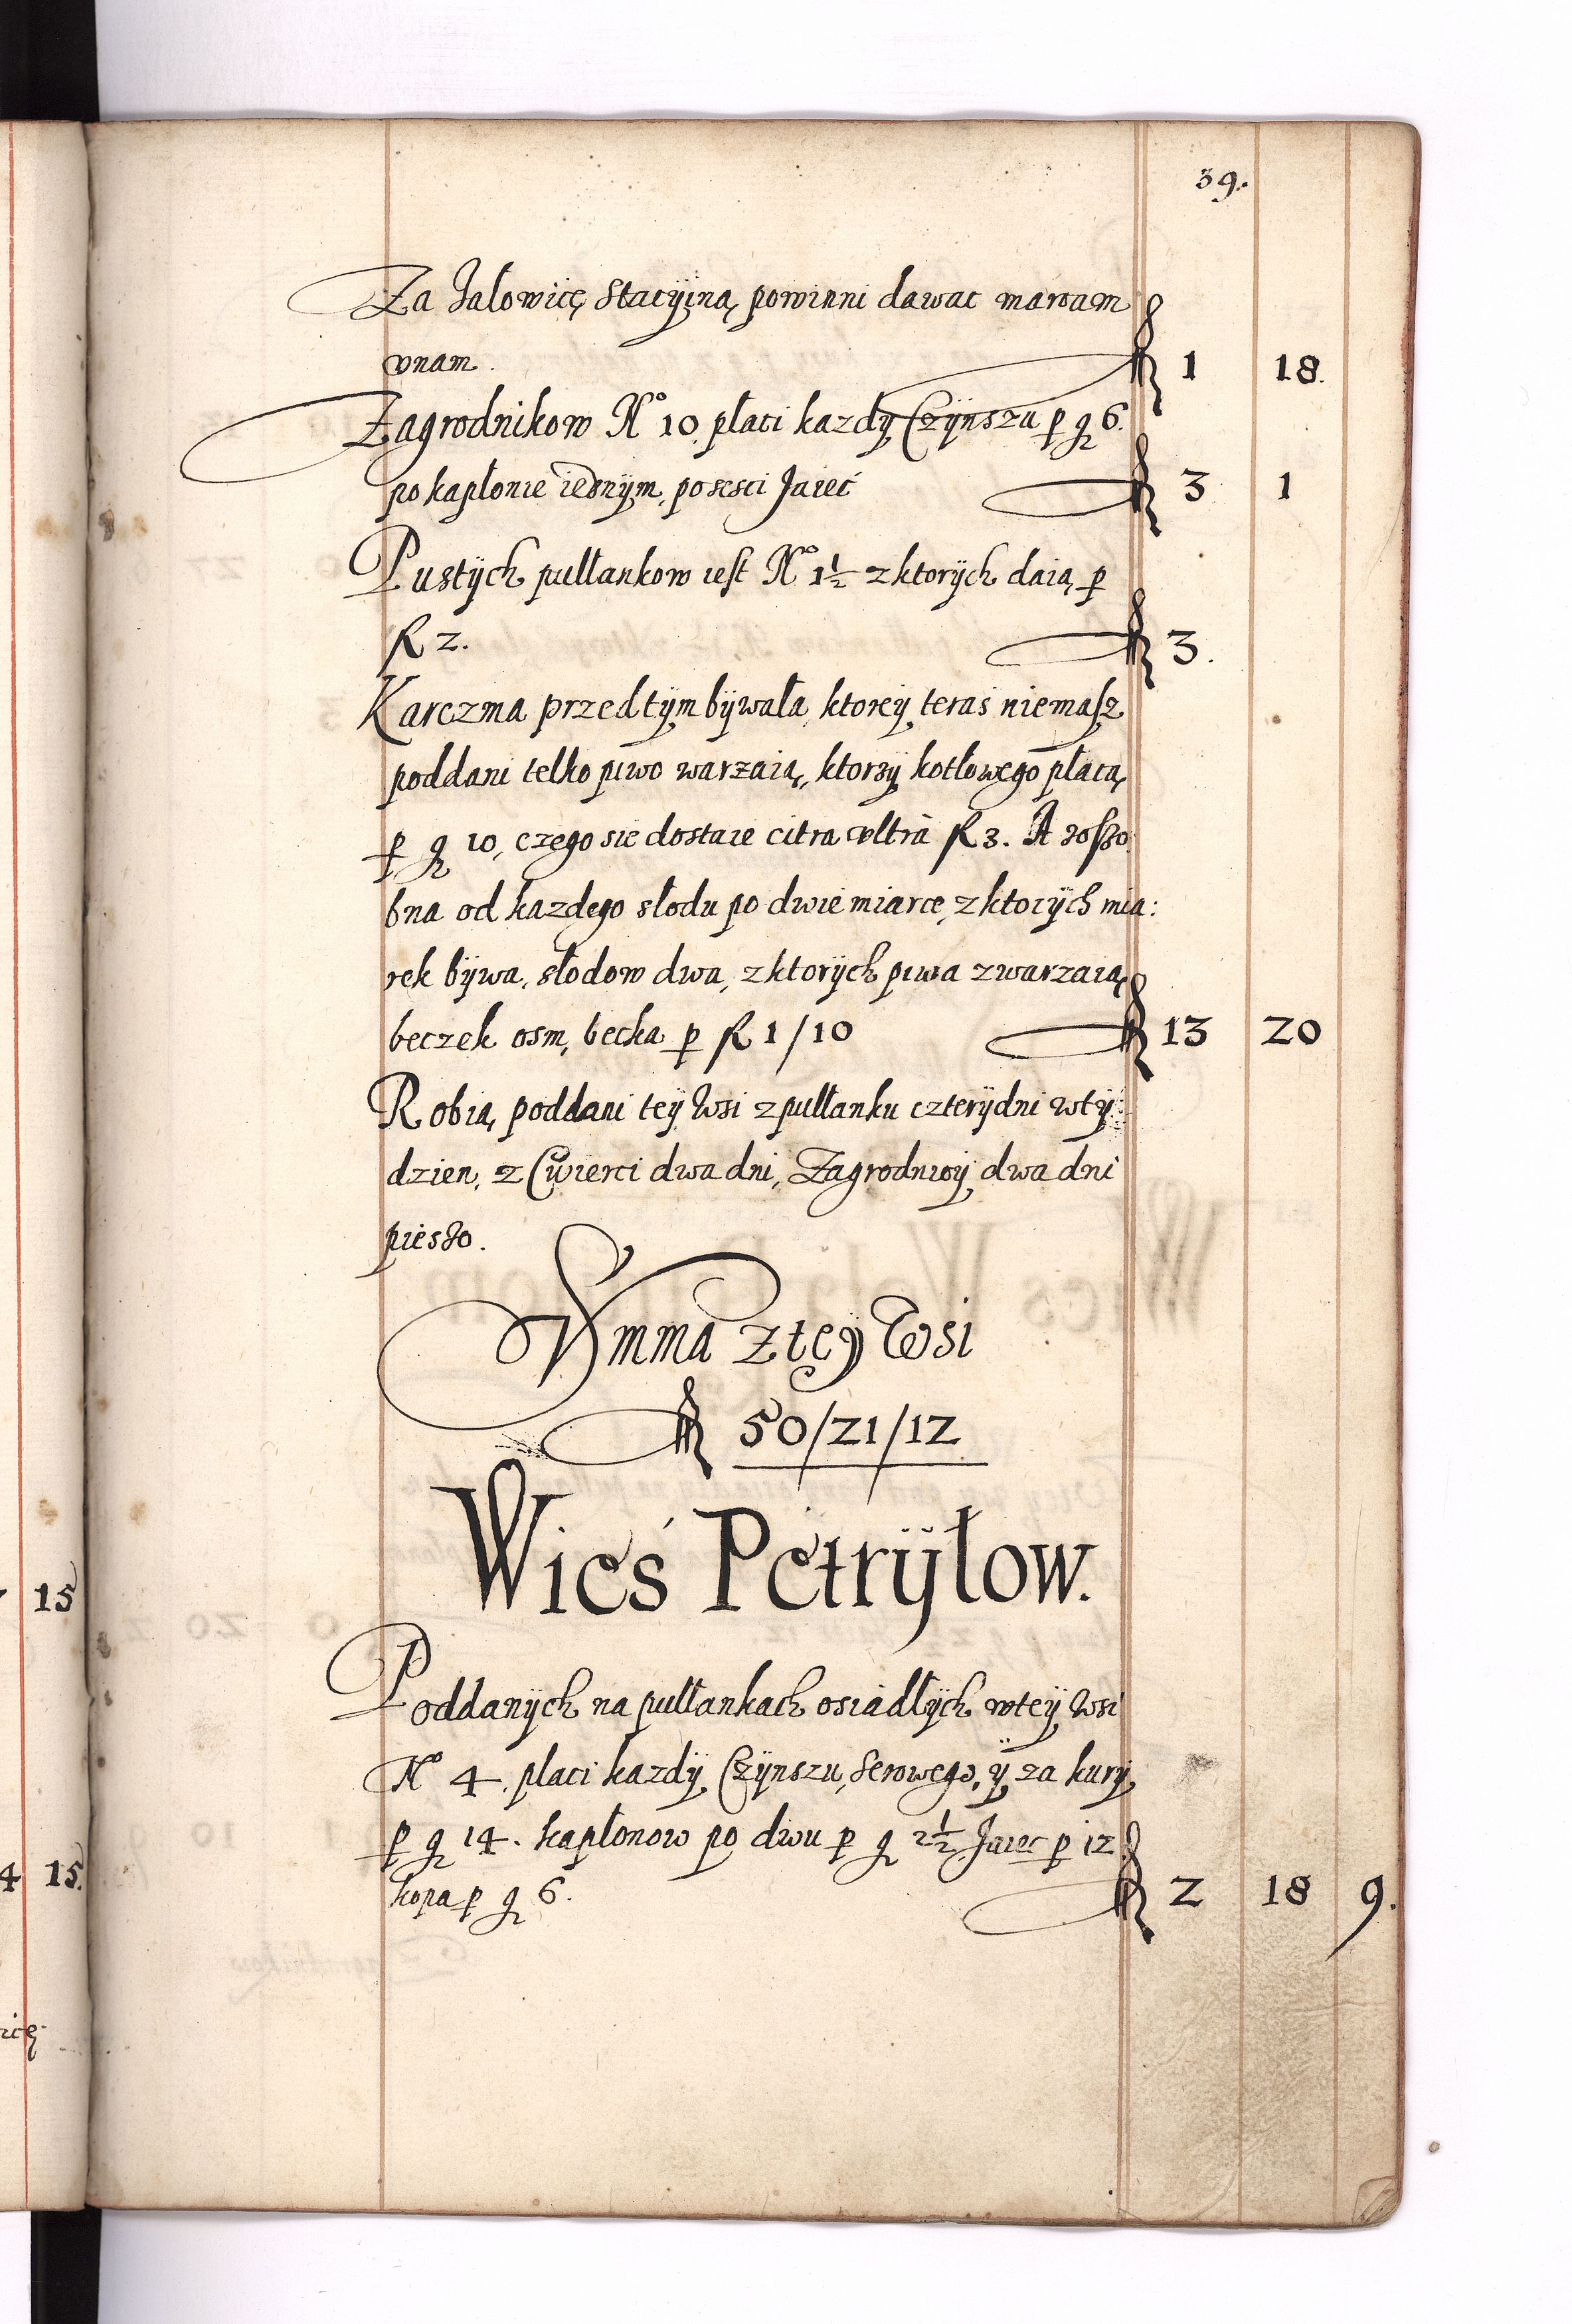 39.
Za Jałowicę Stacÿiną powinni dawac marcam
vnam.
fl 1 18.
Zagrodnikow No 10. płaci kazdÿ Czÿnszu p gr 6.
po kapłonie iednÿm, po sesci Jaiec
fl 3 1
Pustÿch pułłankow iest No 1½ z ktorÿch daią p
fl 2.
fl 3.
Karczma przedtÿm bÿwała, ktoreÿ teras niemasz
poddani telko piwo warzaią, ktorzÿ kotłowego płacą
p gr 10, czego sie dostaie citra vltra fl 3. A zoszo
bna od kazdego słodu po dwie miarce, z ktorÿch mia:
rek bÿwa, słodow dwa, z ktorÿch piwa zwarzaią
beczek osm, becka p fl 1/10
fl 13 20
Robią poddani teÿ wsi z pułłanku czterÿ dni w tÿ:
dzien, z Cwierci dwa dni, Zagrodnicÿ dwa dni
pieszo.
Summa z teÿ Wsi
fl 50/21/12
Wieś Petrÿłow.
Poddanÿch na pułłankach osiadłÿch w teÿ wsi
No 4. płaci kazdÿ Czÿnszu, Serowego, ÿ za kurÿ
p gr 14. kapłonow po dwu p gr 2½ Jaiec p 12
kopa p gr 6.
fl 2 18 9.
15
4 15.